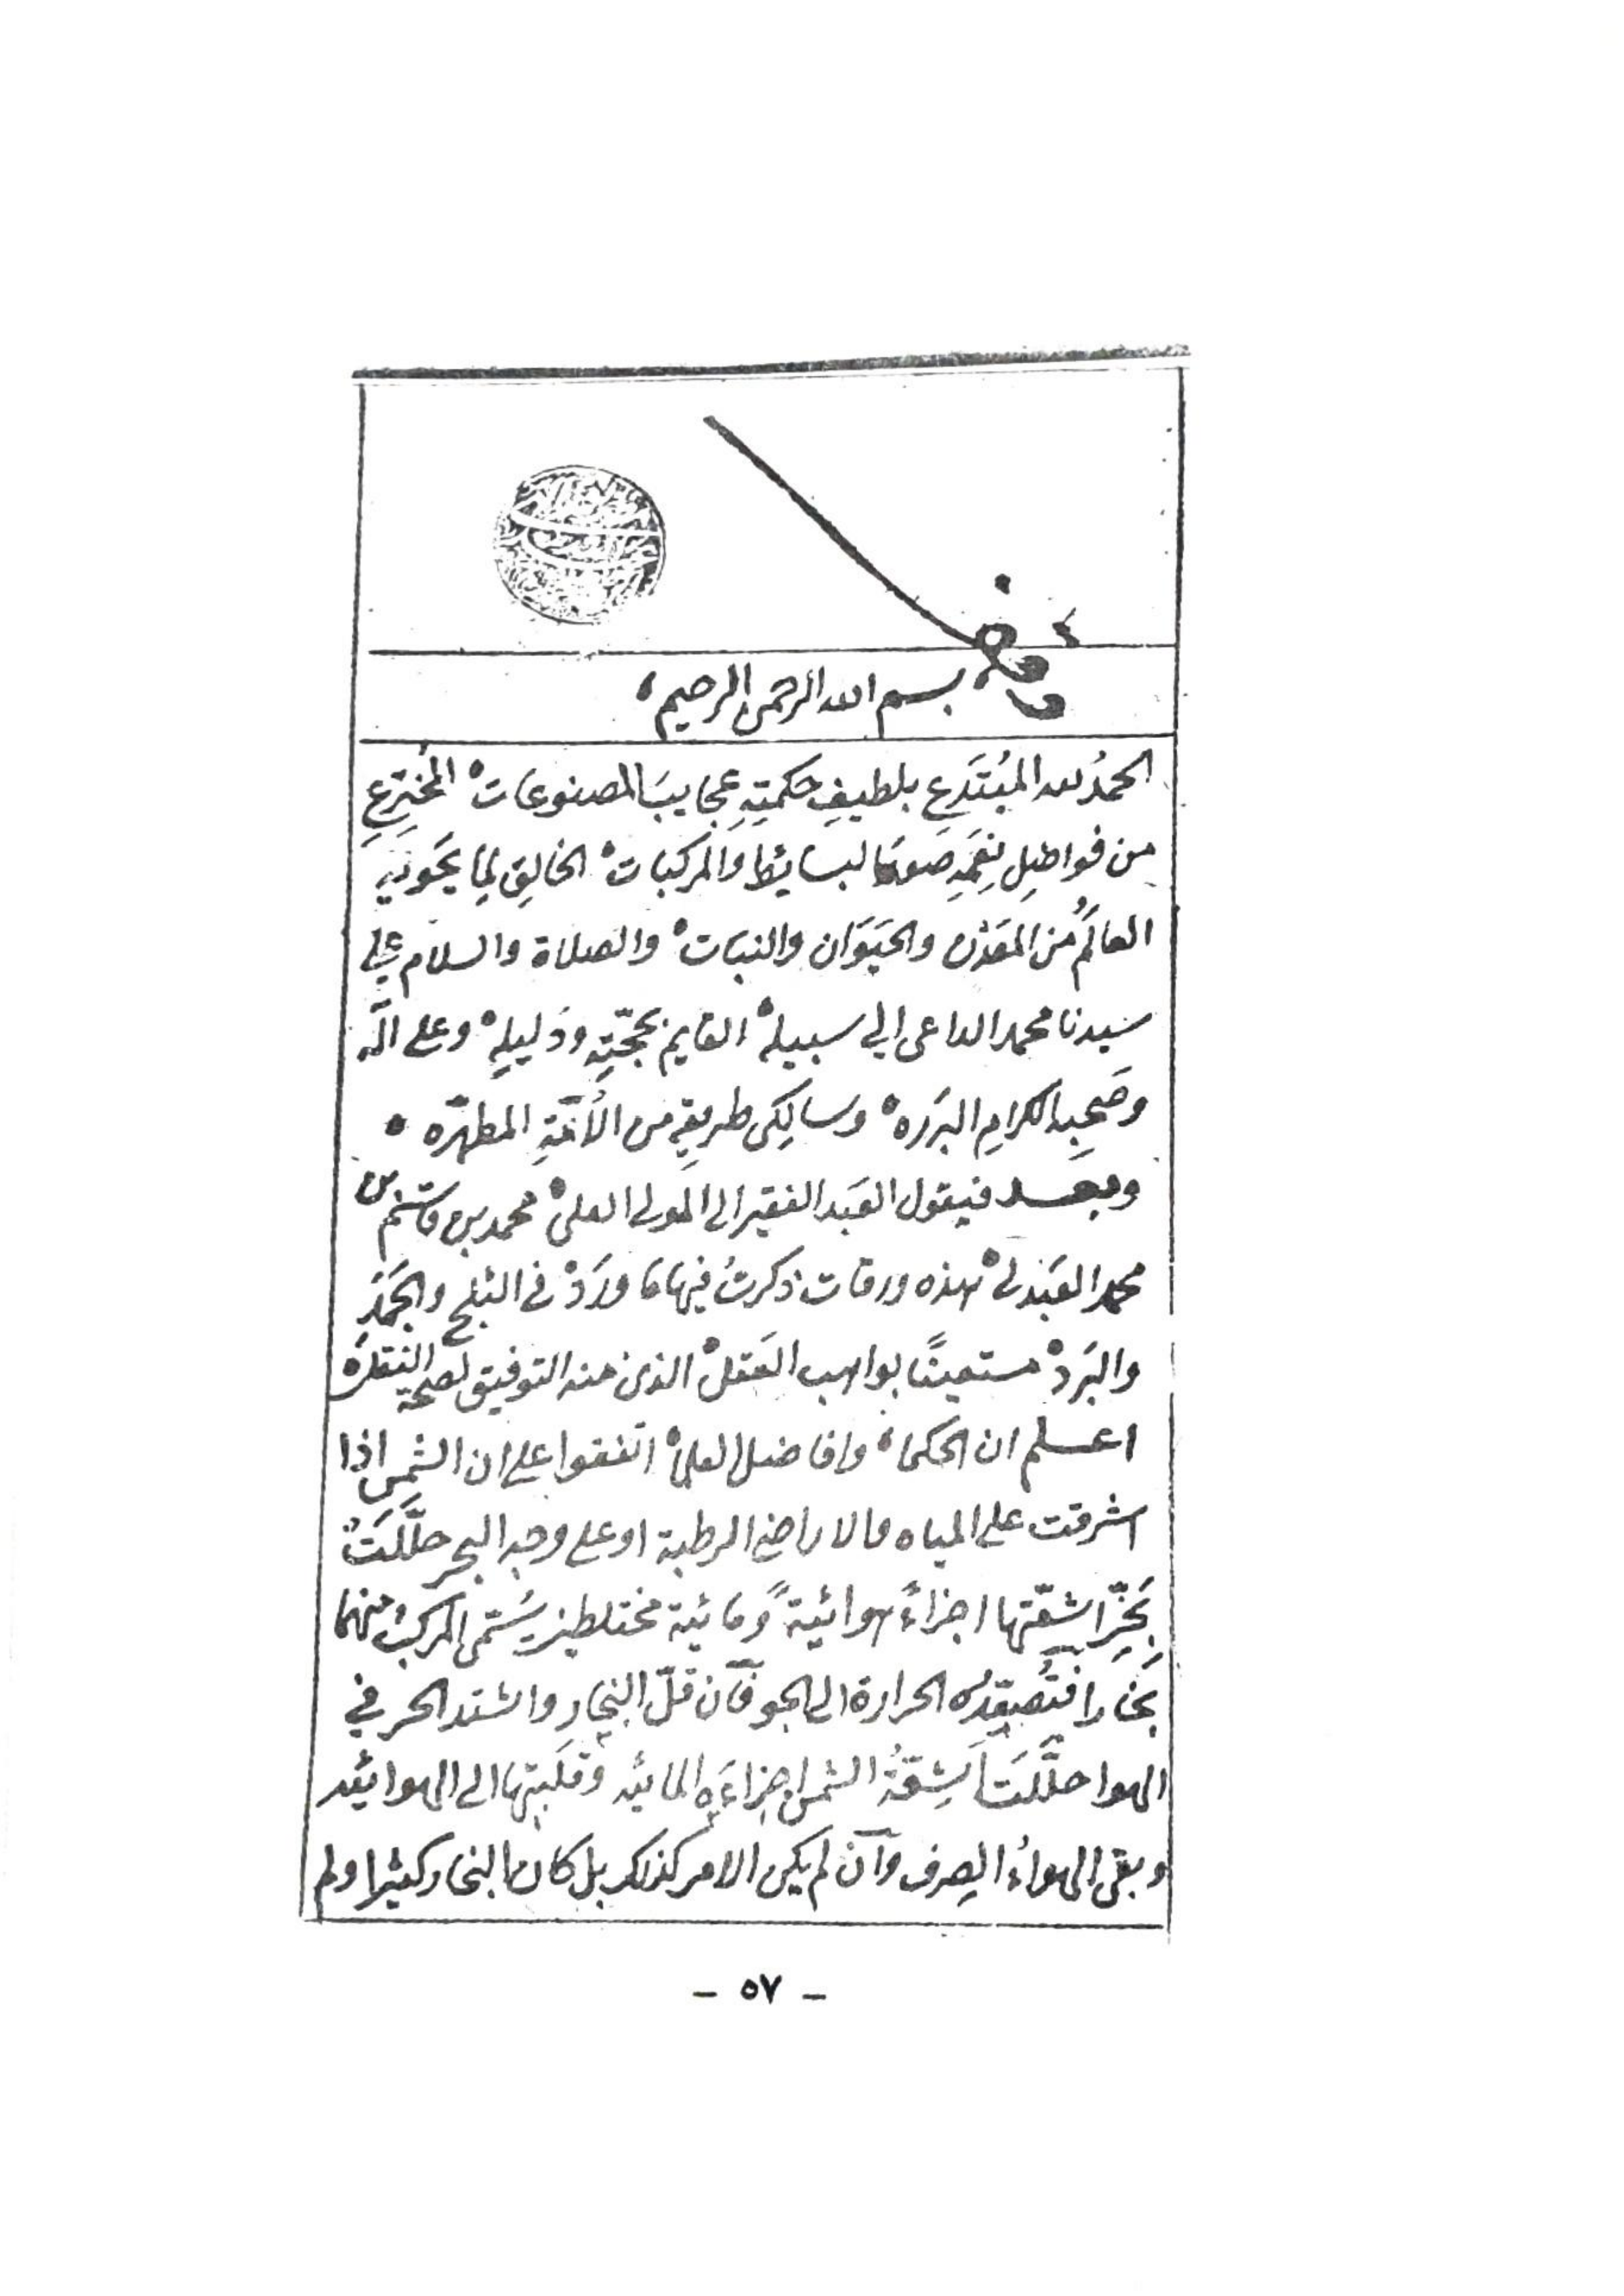 وقف
بسم الله الرحمن الرحيم
الحمدُ لله المُبْتَدِع بلطيفِ حكمتِهِ عجايبَ المصنوعات المُخْتَرِعِ
من فواضلِ نِعَمِهِ صورَ البسايط والمركبات الخالِقِ لِما يَحويه
العالَمُ من المَعْدن والحيَوَان والنبات والصلاة والسلام على
سيدنا محمد الداعى الي سبيله القايم بحجّتِهِ ودَليلِهِ وعلى آله
وصَحبِه الكرامِ البرَرَه وسالِكى طريقِهِ من الأئمّةِ المطهّره
وبعد فيقول العَبد الفقير الى المولى العلى محمد بن قاسم بن
محمد العَبدلى هذه ورقات ذكرتُ فيها ما ورَدَ فى الثلج والجَمَدِ
والبَرَد مستعينًا بواهب العَقل الذى منه التوفيق لصحة النقل
اعلم ان الحكماء وافاضل العلماء اتفقوا على ان الشمس اذا
اشرقت على المياه والاراضى الرطبة او على وجه البحر حلّلَتْ
بِحَرِّ اشعّتها اجزاءً هوائيةً ومائية مختلطين يُسَمى المركبُ منهما
بُخَارا فتُصعِدُه الحرارة الى الجو فان قلّ البخار واشتد الحر في
الهوا حلَّلَت اشِعّةُ الشمس اجزاءَه المائيه وقلَبتها الى الهوائيه
وبقى الهواءُ الصِرف وان لم يكن الامر كذلك بل كان البخار كثيرا ولم
- ٥٧ -